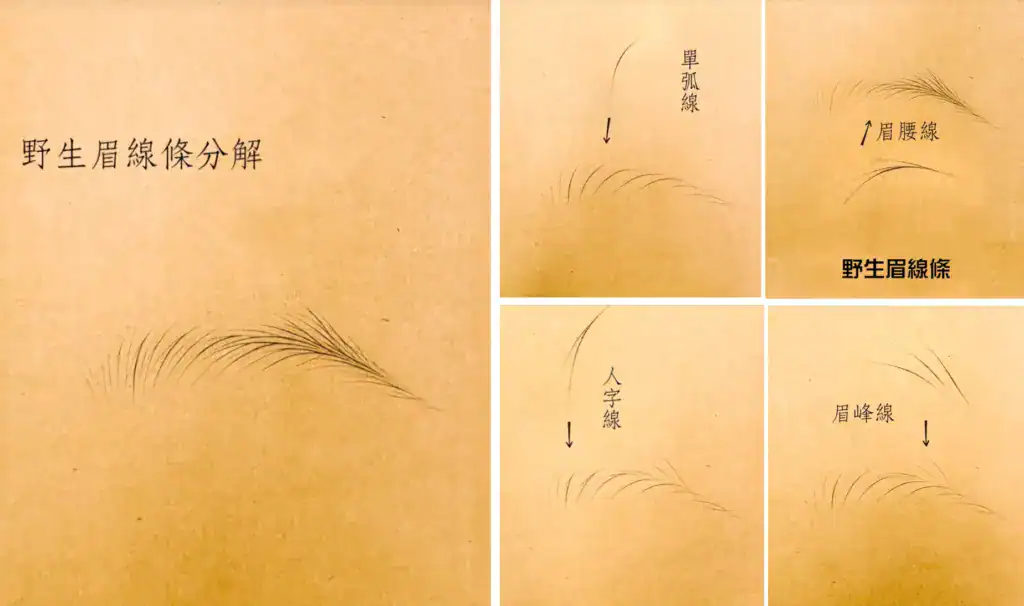 野生眉線條分解
單弧線
眉腰線
野生眉線條
人字線
眉峰線